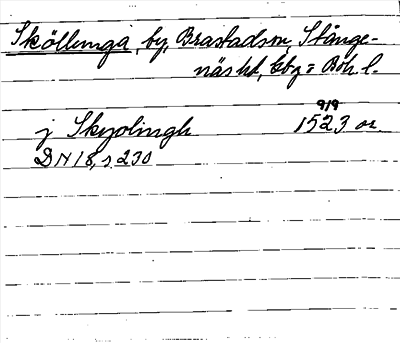 Sköllunga, by, Brastad sn, Stånge-
näs hd, Gbg o Boh. l.
9/9
j Skyolingh 1523 or.
DN 18, s 230